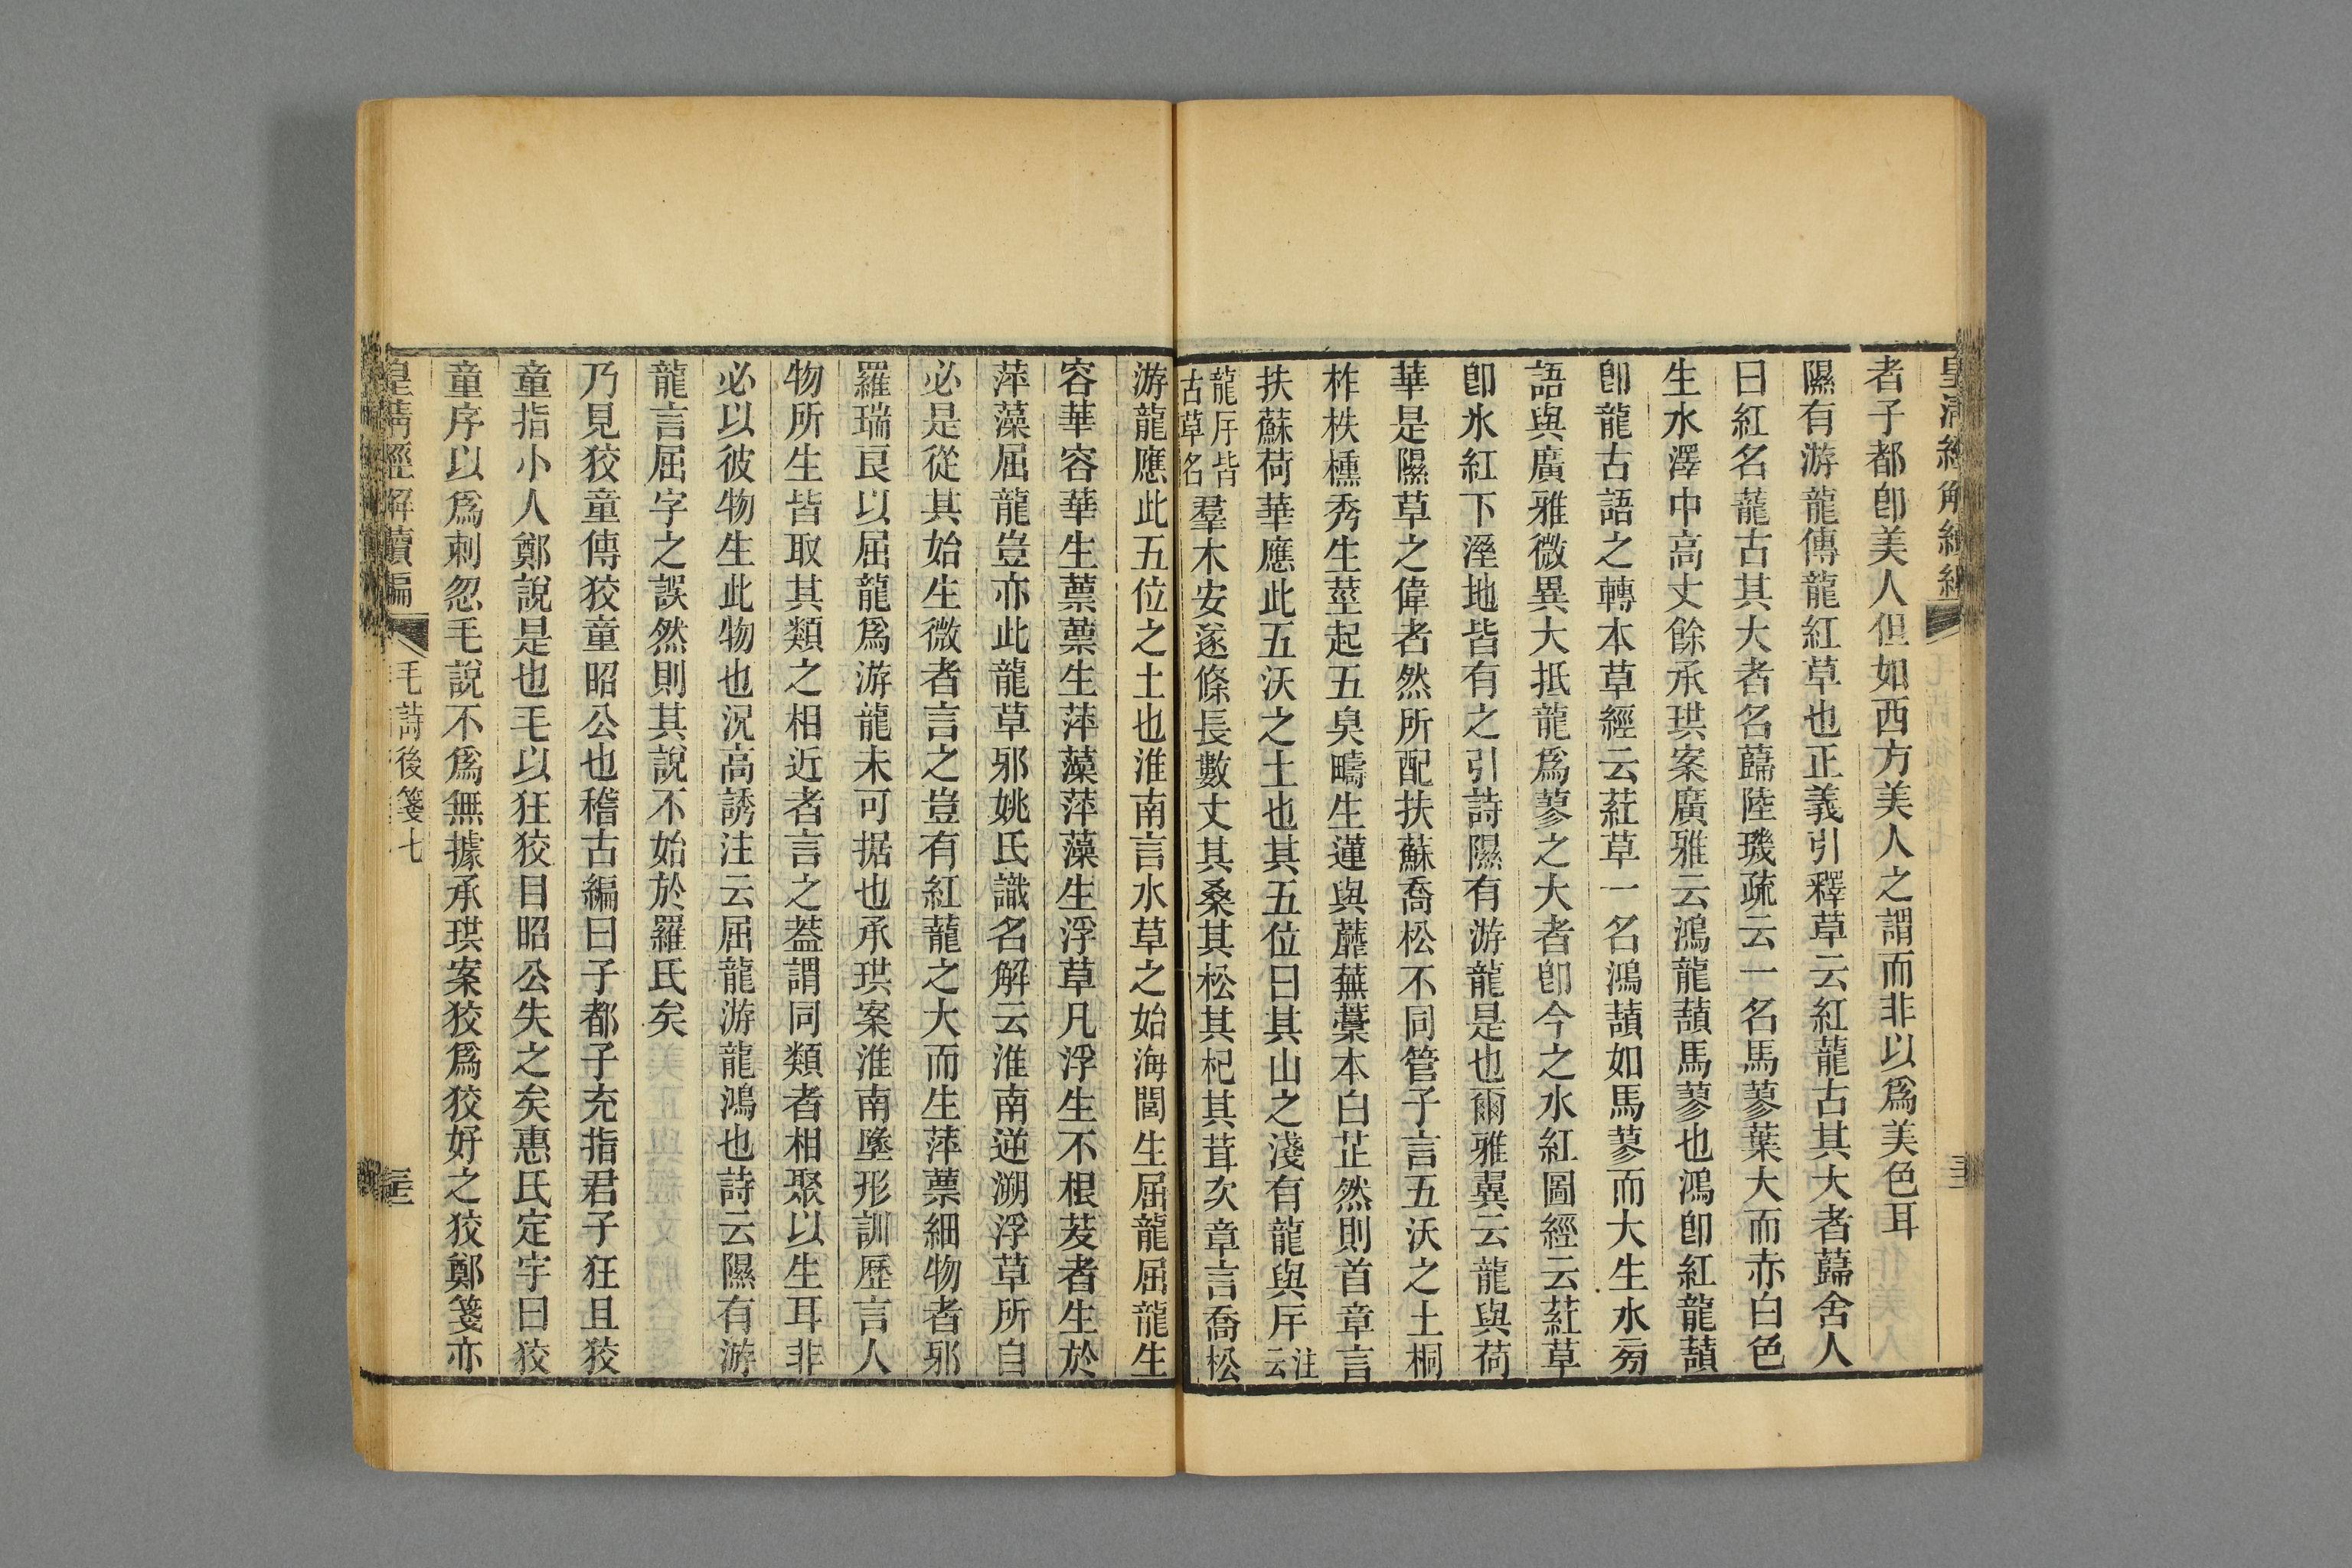 者子都卽美人但如西方美人之謂而非以爲美色耳
隰有游龍傳龍紅草也正義引釋草云紅蘢古其大者蘬舍人
曰紅名蘢古其大者名蘬陸璣疏云一名馬蓼葉大而赤白色
生水澤中高丈餘承珙案廣雅云鴻龍䕞馬蓼也鴻卽紅龍䕞
卽龍古語之轉本草經云葒草一名鴻䕞如馬蓼而大生水㫄
語與廣雅微異大抵龍爲蓼之大者卽今之水紅圖經云葒草
卽水紅下溼地皆有之引詩隰有游龍是也爾雅翼云龍與荷
華是隰草之偉者然所配扶蘇喬松不同管子言五沃之土桐
柞枎櫄秀生莖起五臭疇生蓮與蘼蕪藳本白芷然則首章言
扶蘇荷華應此五沃之土也其五位曰其山之淺有龍與斥注云
龍斥皆古草名羣木安遂條長數丈其桑其松其杞其茸次章言喬松
游龍應此五位之土也淮南言水草之始海閭生屈龍屈龍生
容華容華生蔈蔈生萍藻萍藻生浮草凡浮生不根茇者生於
萍藻屈龍豈亦此龍草邪姚氏識名解云淮南逆溯浮草所自
必是從其始生微者言之豈有紅蘢之大而生萍蔈細物者邪
羅瑞良以屈龍爲游龍未可据也承珙案淮南墬形訓歷言人
物所生皆取其類之相近者言之葢謂同類者相聚以生耳非
必以彼物生此物也況高誘注云屈龍游龍鴻也詩云隰有游
龍言屈字之誤然則其說不始於羅氏矣
乃見狡童傳狡童昭公也稽古編曰子都子充指君子狂且狡
童指小人鄭說是也毛以狂狡目昭公失之矣惠氏定宇曰狡
童序以爲刺忽毛說不爲無據承珙案狡爲狡好之狡鄭箋亦
皇淸經解續編
毛詩後箋七